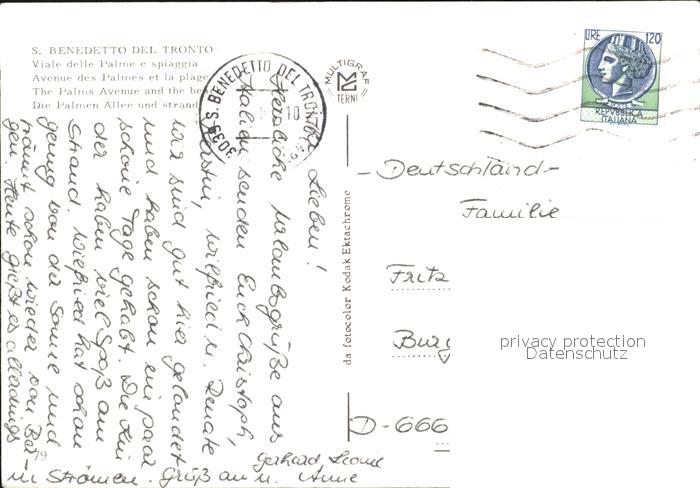 S. BENEDETTO DEL TRONTO
Viale delle Palme e spiaggia
Avenue des Palmes et la plage
The Palms Avenue and the be
Die Palmen Allee und strand
S. BENEDETTO DEL TRONTO
10
MULTIGRAF
TERNI
LIRE 120
REPVBBLICA
ITALIANA
da fotocolor Kodak Ektachrome
Lieben!
Herzliche Urlaubsgrüße aus
Italien senden Euch Christoph,
Kerstin, Wilfried u. Renate
Wir sind gut hier gelandet
und haben schon ein paar
schöne Tage gehabt. Die Kin
der haben viel Spaß am
Strand. Wilfried hat schon
genug von der Sonne und
träumt schon wieder von Ber
gen. Heute gießt es allerdings
in Strömen. Gruß an u. Anne
Gerhard
79
- Deutschland -
Familie
Fritz
Burg
D-666
privacy protection
Datenschutz